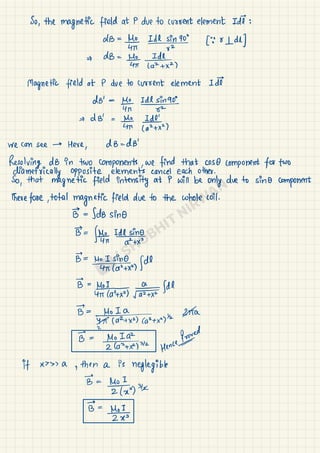 So, the magnetic field at P due to current element Idl⃗ :
dB = μ₀/4π Idl sin 90°/r² [∵ r ⊥ dl]
⇒ dB = μ₀/4π Idl/(a²+x²)
Magnetic field at P due to current element Idl⃗
dB' = μ₀/4π Idl sin90°/r²
⇒ dB' = μ₀/4π Idl'/(a²+x²)
we can see → Here, dB = dB'
Resolving dB in two components, we find that cosθ component for two
diametrically opposite elements cancel each other.
So, that magnetic field intensity at P will be only due to sinθ component
Therefore, total magnetic field due to the whole coil.
B⃗ = ∫dB sinθ
B⃗ = ∫ μ₀/4π Idl sinθ/a²+x²
B⃗ = μ₀ I sinθ/4π(a²+x²) ∫dl
B⃗ = μ₀I/4π(a²+x²) a/√a²+x² ∫dl
B⃗ = μ₀ I a/4π (a²+x²) (a²+x²)^1/2 2πa
B⃗ = μ₀ I a²/2(a²+x²)^3/2 Hence Proved
if x>>>a, then a is neglegible
B⃗ = μ₀ I/2(x²)^3/2
B⃗ = μ₀ I/2x³